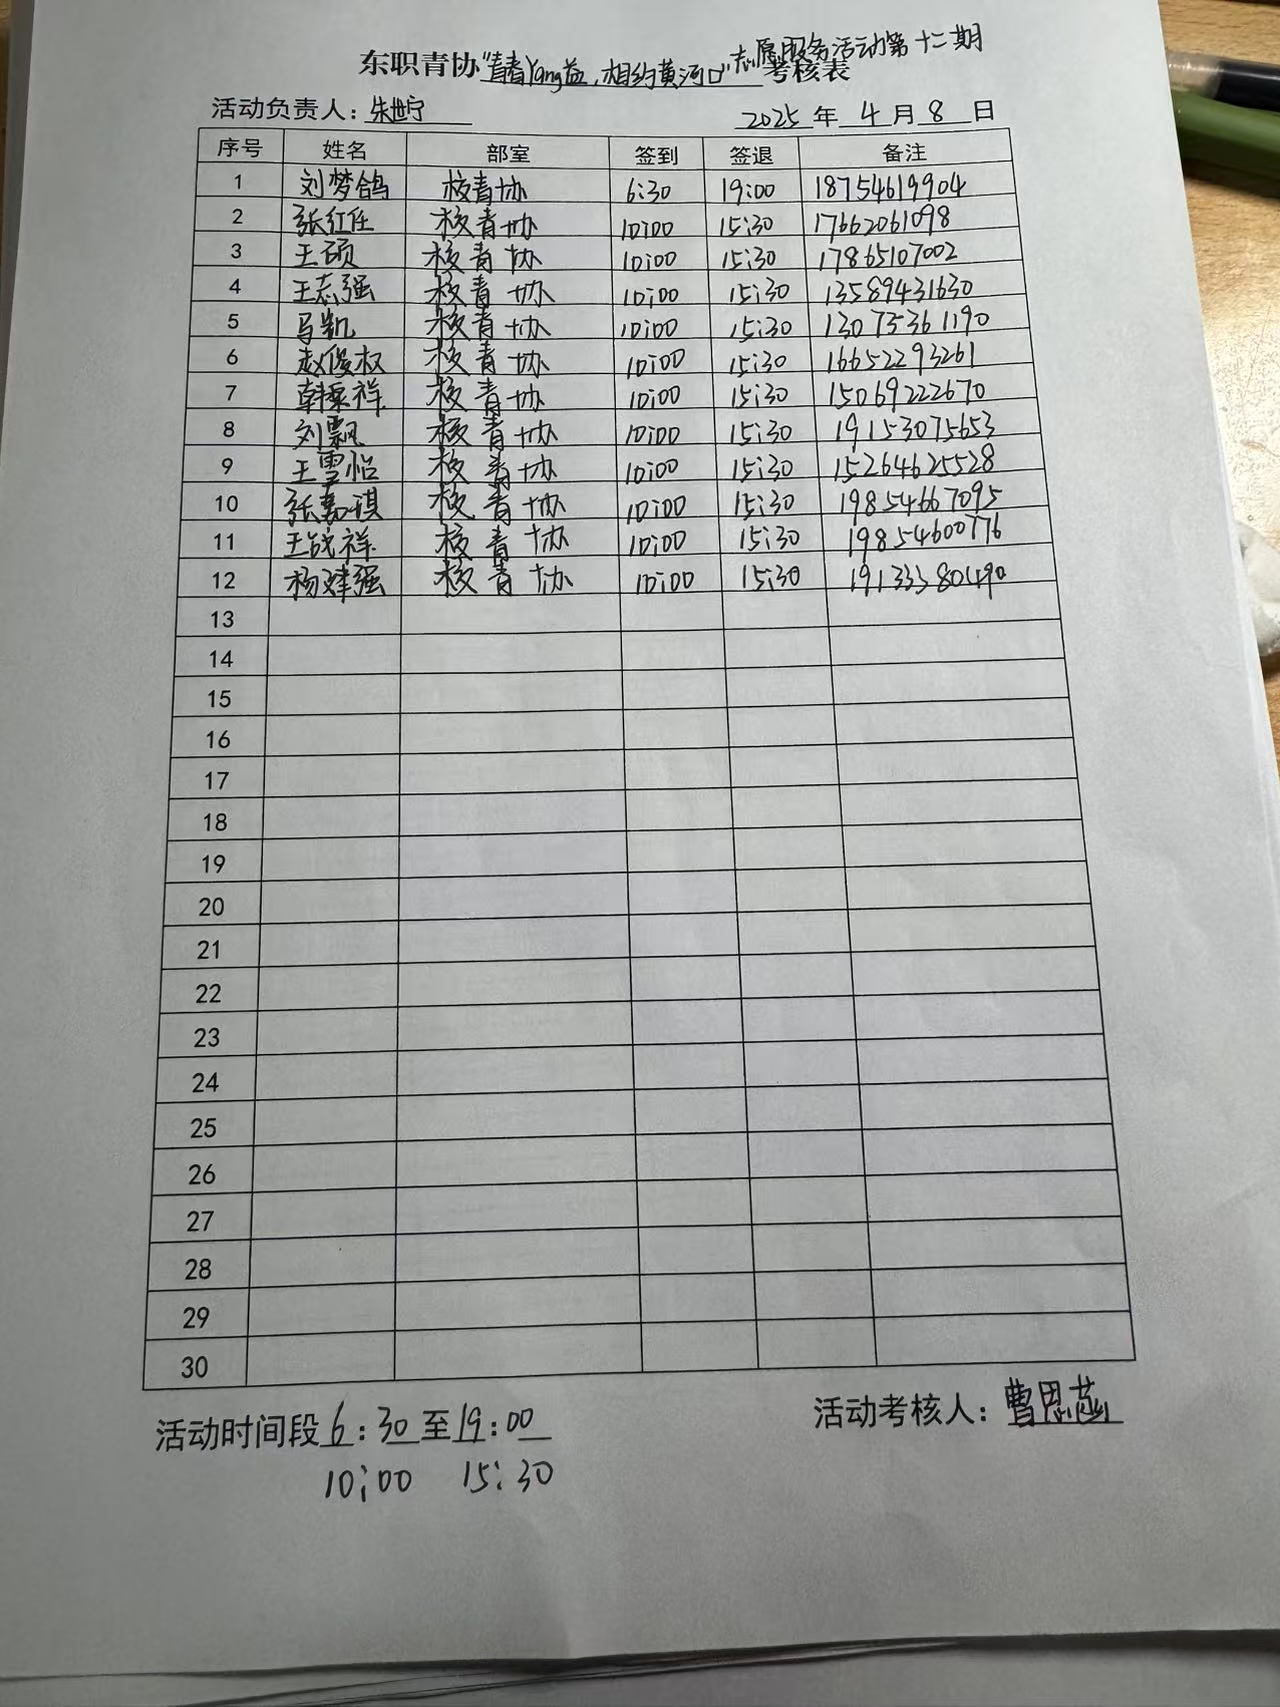 东职青协“青春Yang益,相约黄河口”志愿服务活动第十二期考核表
活动负责人:朱世宁 2025年4月8日
序号 姓名 部室 签到 签退 备注
1 刘梦鸽 校青协 6:30 19:00 18754619904
2 张红任 校青协 10:00 15:30 17662061098
3 王硕 校青协 10:00 15:30 17865107002
4 王志强 校青协 10:00 15:30 13589431630
5 马凯 校青协 10:00 15:30 13075361190
6 赵俊权 校青协 10:00 15:30 16652293261
7 韩秉祥 校青协 10:00 15:30 15069222670
8 刘飘 校青协 10:00 15:30 19153075653
9 王雪怡 校青协 10:00 15:30 15264625528
10 张嘉琪 校青协 10:00 15:30 19854667095
11 王战祥 校青协 10:00 15:30 19854600776
12 杨建强 校青协 10:00 15:30 19133380490
13
14
15
16
17
18
19
20
21
22
23
24
25
26
27
28
29
30
活动时间段6:30至19:00 活动考核人:曹思蕊
10:00 15:30